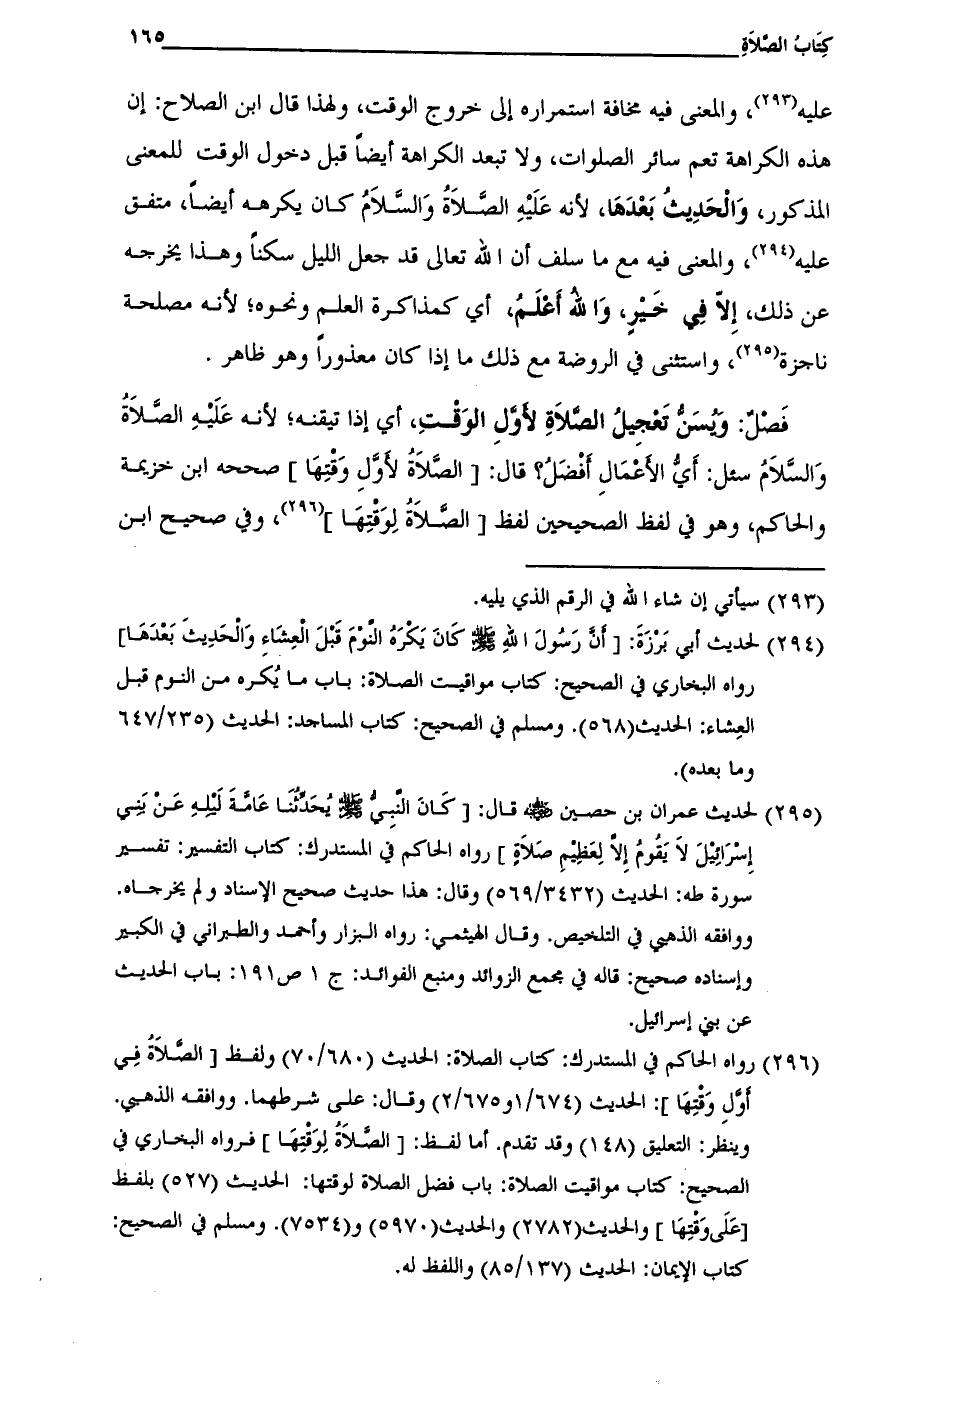 كِتَابُ الصَّلاَةِ ١٦٥
عليه(٢٩٣)، والمعنى فيه مخافة استمراره إلى خروج الوقت، ولهذا قال ابن الصلاح: إن
هذه الكراهة تعم سائر الصلوات، ولا تبعد الكراهة أيضاً قبل دخول الوقت للمعنى
المذكور، وَالْحَدِيثُ بَعْدَهَا، لأنه عَلَيْهِ الصَّلاَةُ وَالسَّلاَمُ كان يكرهه أيضاً، متفق
عليه(٢٩٤)، والمعنى فيه مع ما سلف أن الله تعالى قد جعل الليل سكناً وهذا يخرجه
عن ذلك، إِلاَّ فِي خَيْرٍ، وَاللهُ أَعْلَمُ، أي كمذاكرة العلم ونحوه؛ لأنه مصلحة
ناجزة(٢٩٥)، واستثنى في الروضة مع ذلك ما إذا كان معذوراً وهو ظاهر .
فَصْلٌ: وَيُسَنُّ تَعْجِيلُ الصَّلاَةِ لأَوَّلِ الوَقْتِ، أي إذا تيقنه؛ لأنه عَلَيْهِ الصَّلاَةُ
وَالسَّلاَمُ سئل: أَيُّ الأَعْمَالِ أَفْضَلُ؟ قال: [ الصَّلاَةُ لأَوَّلِ وَقْتِهَا ] صححه ابن خزيمة
والحاكم، وهو في لفظ الصحيحين لفظ [ الصَّلاَةُ لِوَقْتِهَا ](٢٩٦)، وفي صحيح ابن
(٢٩٣) سيأتي إن شاء الله في الرقم الذي يليه.
(٢٩٤) لحديث أبي بَرْزَةَ: [ أَنَّ رَسُولَ اللهِ ﷺ كَانَ يَكْرَهُ النَّوْمَ قَبْلَ الْعِشَاءِ وَالْحَدِيثَ بَعْدَهَا]
رواه البخاري في الصحيح: كتاب مواقيت الصلاة: باب ما يُكره من النوم قبل
العِشاء: الحديث(٥٦٨). ومسلم في الصحيح: كتاب المساجد: الحديث (٦٤٧/٢٣٥
وما بعده).
(٢٩٥) لحديث عمران بن حصين ﷺ قال: [ كَانَ النَّبِيُّ ﷺ يُحَدِّثُنَا عَامَّةَ لَيْلِهِ عَنْ بَنِي
إِسْرَائِيْلَ لاَ يَقُومُ إِلاَّ لِعَظِيْمِ صَلاَةٍ ] رواه الحاكم في المستدرك: كتاب التفسير: تفسير
سورة طه: الحديث (٥٦٩/٣٤٣٢) وقال: هذا حديث صحيح الإسناد ولم يخرجاه.
ووافقه الذهبي في التلخيص. وقال الهيثمي: رواه البزار وأحمد والطبراني في الكبير
وإسناده صحيح: قاله في مجمع الزوائد ومنبع الفوائد: ج ١ ص١٩١: باب الحديث
عن بني إسرائيل.
(٢٩٦) رواه الحاكم في المستدرك: كتاب الصلاة: الحديث (٧٠/٦٨٠) ولفظ [ الصَّلاَةُ فِي
أَوَّلِ وَقْتِهَا ]: الحديث (١/٦٧٤و٢/٦٧٥) وقال: على شرطهما. ووافقه الذهبي.
وينظر: التعليق (١٤٨) وقد تقدم. أما لفظ: [ الصَّلاَةُ لِوَقْتِهَا ] فرواه البخاري في
الصحيح: كتاب مواقيت الصلاة: باب فضل الصلاة لوقتها: الحديث (٥٢٧) بلفظ
[عَلَى وَقْتِهَا ] والحديث(٢٧٨٢) والحديث(٥٩٧٠) و(٧٥٣٤). ومسلم في الصحيح:
كتاب الإيمان: الحديث (٨٥/١٣٧) واللفظ له.